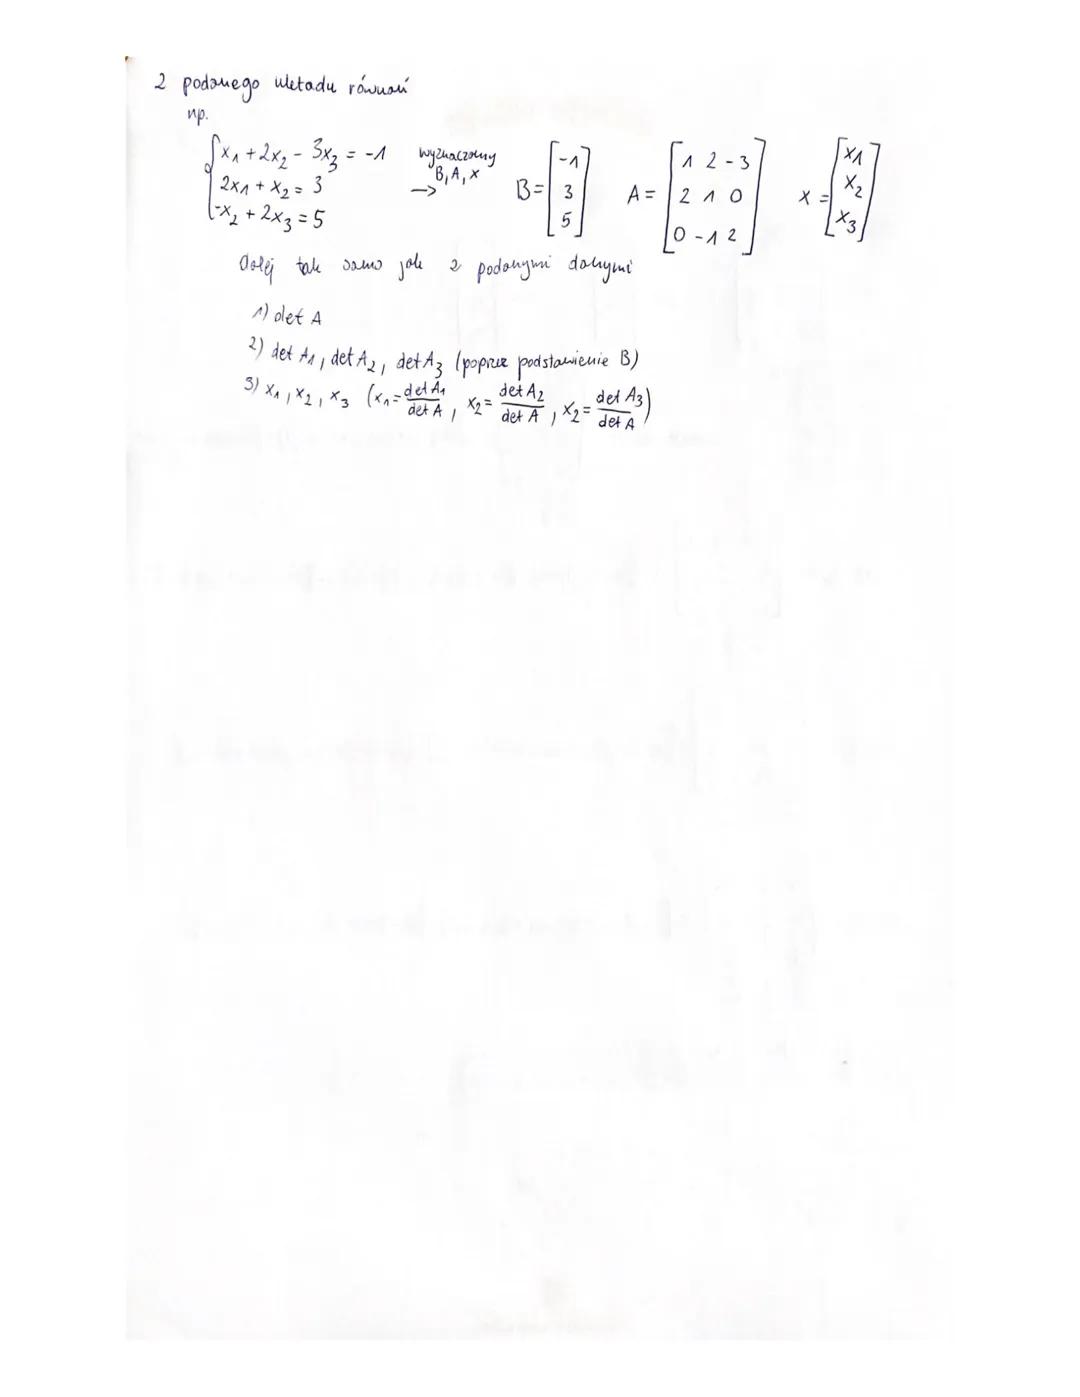 z podanego układu równań
np.
x₁ + 2x₂ - 3x₃ = -1
2x₁ + x₂ = 3
-x₂ + 2x₃ = 5
wyznaczamy B, A, x →
B = [-1 3 5]
A = [1 2 -3
2 1 0
0 -1 2]
x = [x₁ x₂ x₃]
dalej tak samo jak z podanymi danymi
1) det A
2) det A₁, det A₂, det A₃ (poprzez podstawienie B)
3) x₁, x₂, x₃ (x₁ = det A₁ / det A, x₂ = det A₂ / det A, x₂ = det A₃ / det A)